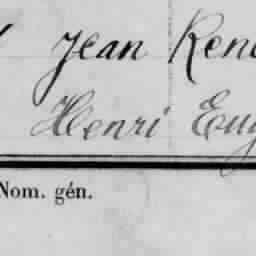 Jean René
Henri Eug
Nom. gén.